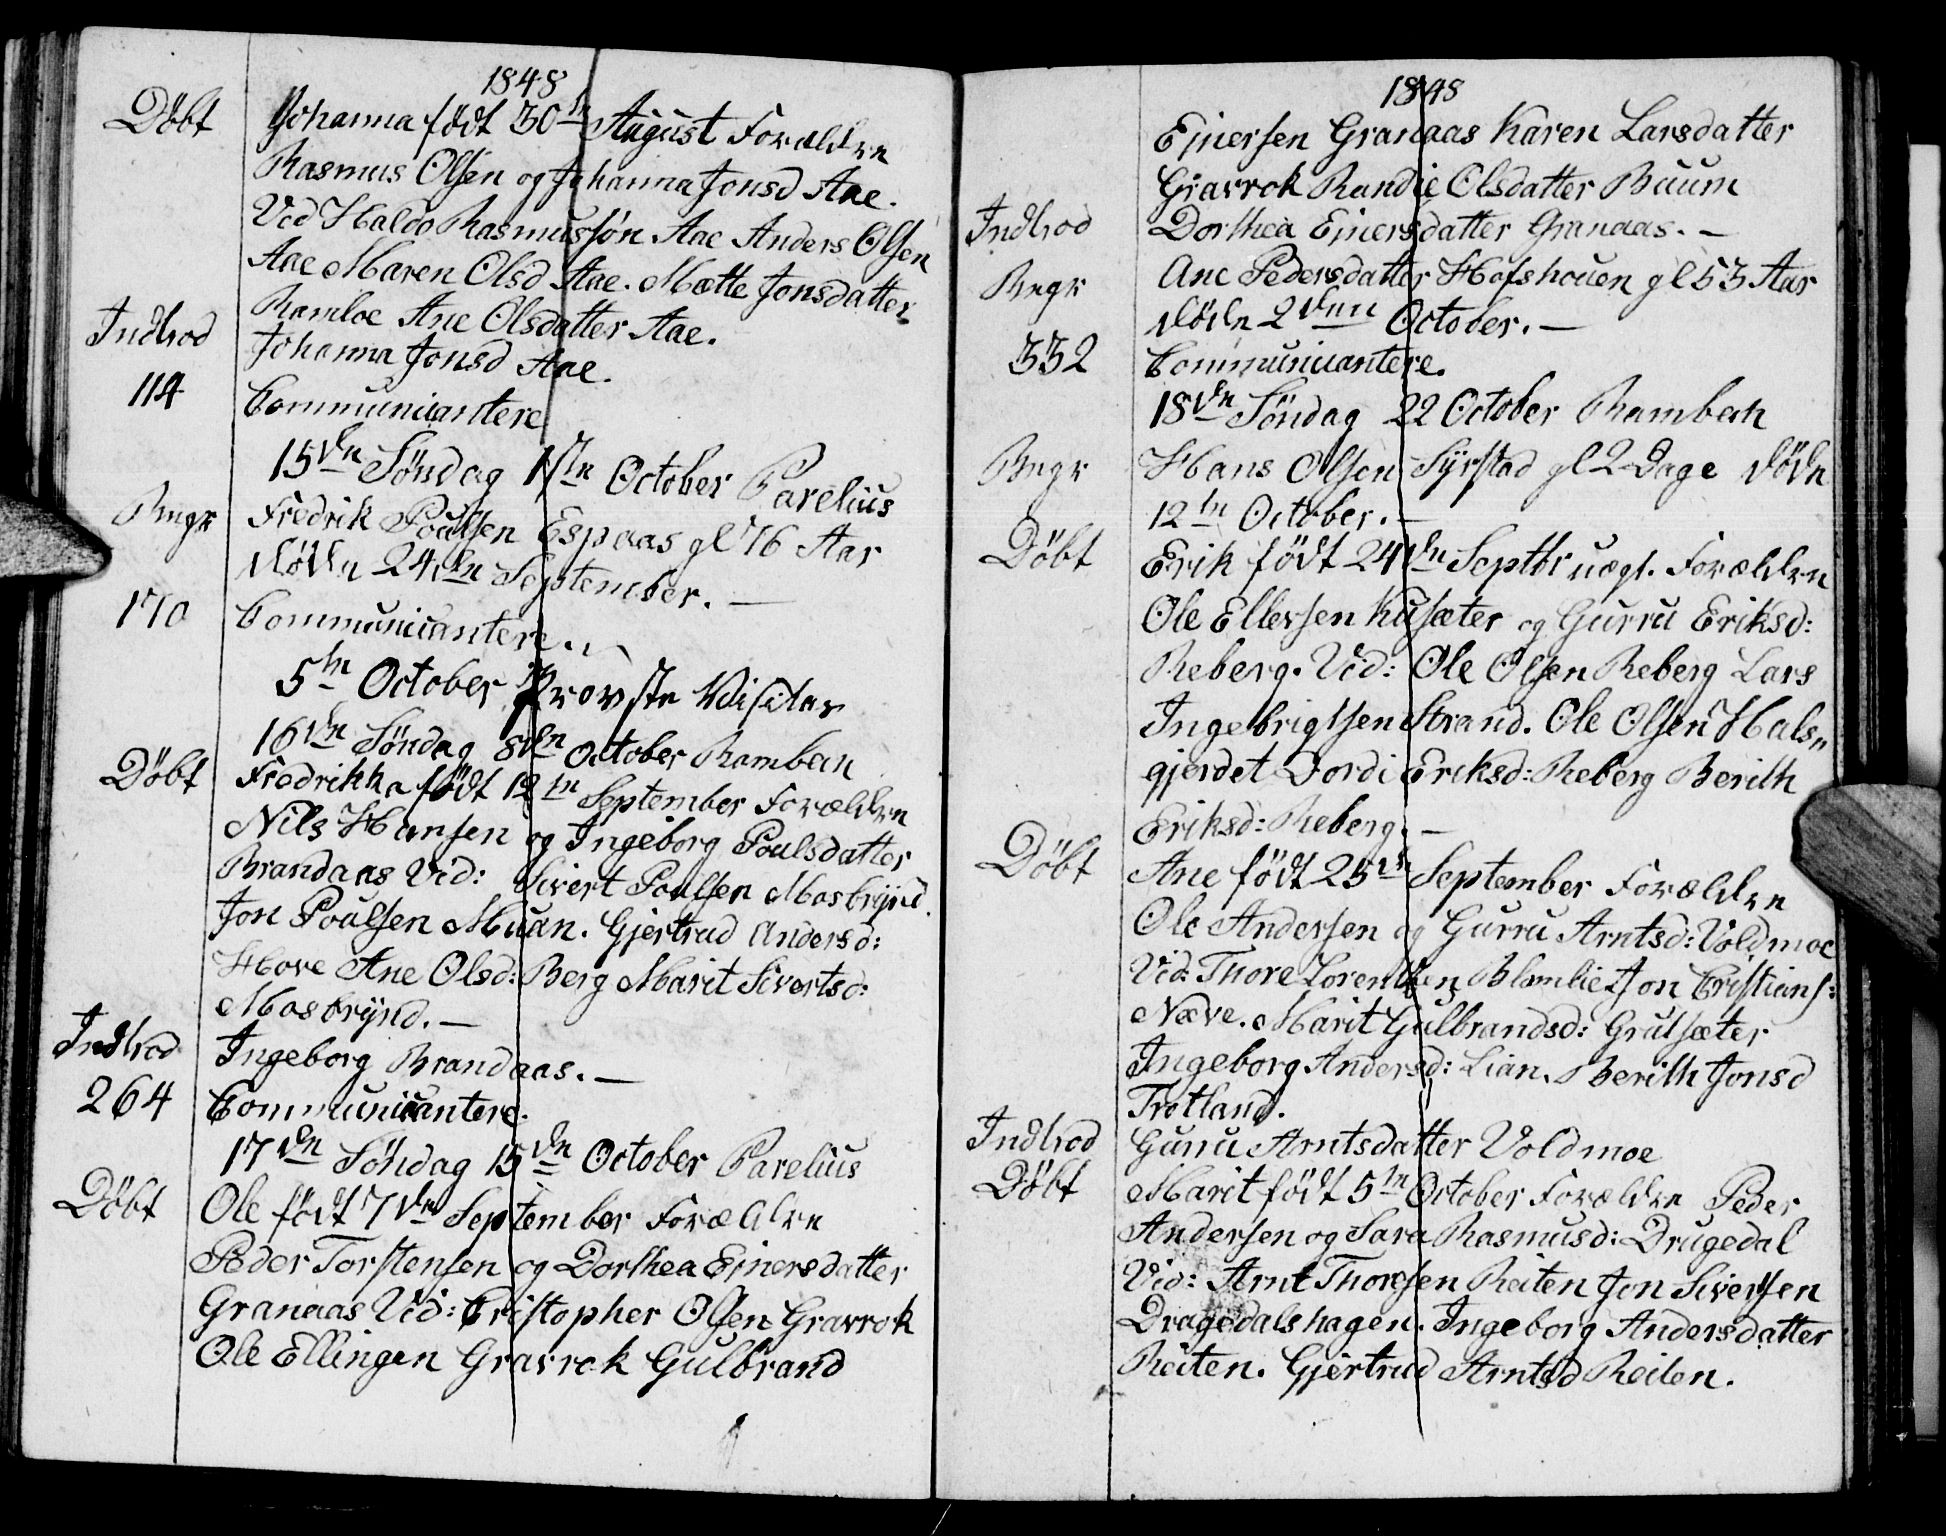 1848
Döbt Johanna födt 30te August Forældre
Rasmus Olsen og Johanna Jonsd Aae.
Vid Haldo Rasmussön Aae Anders Olsen
Aae Maren Olsd Aae. Mætte Jonsdatter
Ramloe Ane Olsdatter Aae.
Indlod Johanna Jonsd Aae.
114 Communicantere
15de Söndag 1ste October Parelius
Begr Fredrik Poulsen Espaas gl 76 Aar
döde 24de September. —
170 Communicantere.
5te October Provste Visitas
16de Söndag 8de October Rambech
Döbt Fredrikka födt 12te September Forældre
Nils Hansen og Ingeborg Poulsdatter
Brandaas Vid: Sivert Poulsen Mosbrynd.
Jon Poulsen Muan. Gjertrud Andersd:
Hove Ane Olsd: Berg Marit Sivertsd:
Mosbrynd. —
Indlod Ingeborg Brandaas. —
264 Communicantere.
17de Söndag 15de October Parelius
Döbt Ole födt 7de September Forældre
Peder Torstensen og Dorthea Ejnersdatter
Granaas Vid: Cristopher Olsen Gravrok
Ole Ellingen Gravrok Gulbrand
1848
Ejnersen Granaas Karen Larsdatter
Gravrok Randie Olsdatter Buum
Indlod Dorthea Ejnersdatter Granaas. —
Begr Ane Pedersdatter Hofshouen gl 53 Aar
döde 2den October. —
332 Communicantere.
18de Söndag 22 October Rambech
Begr Hans Olsen Syrstad gl 2 Dage döde
12te October. —
Döbt Erik födt 24de Septbr uægt. Forældre
Ole Ellevsen Kusæter og Gurru Eriksd:
Reberg. Vid: Ole Olsen Reberg Lars
Ingebrigtsen Strand. Ole Olsen Hals„
gjerdet Dordi Eriksd: Reberg Berith
Eriksd: Reberg. —
Döbt Ane födt 25de September Forældre
Ole Andersen og Gurru Arntsd: Voldmoe
Vid: Thore Lorentsen Blomlie Jon Cristians:
Næve. Marit Gulbrandsd: Grutsæter
Ingeborg Andersd: Lian. Berith Jonsd
Trotland.
Indlod Gurru Arntsdatter Voldmoe
Döbt Marit födt 5te October Forældre Peder
Andersen og Sara Rasmusd: Drugedal
Vid: Arnt Thorsen Reiten Jon Sivertsen
Dragedalshagen. Ingeborg Andersdatter
Reiten. Gjertrud Arntsd Reiten.